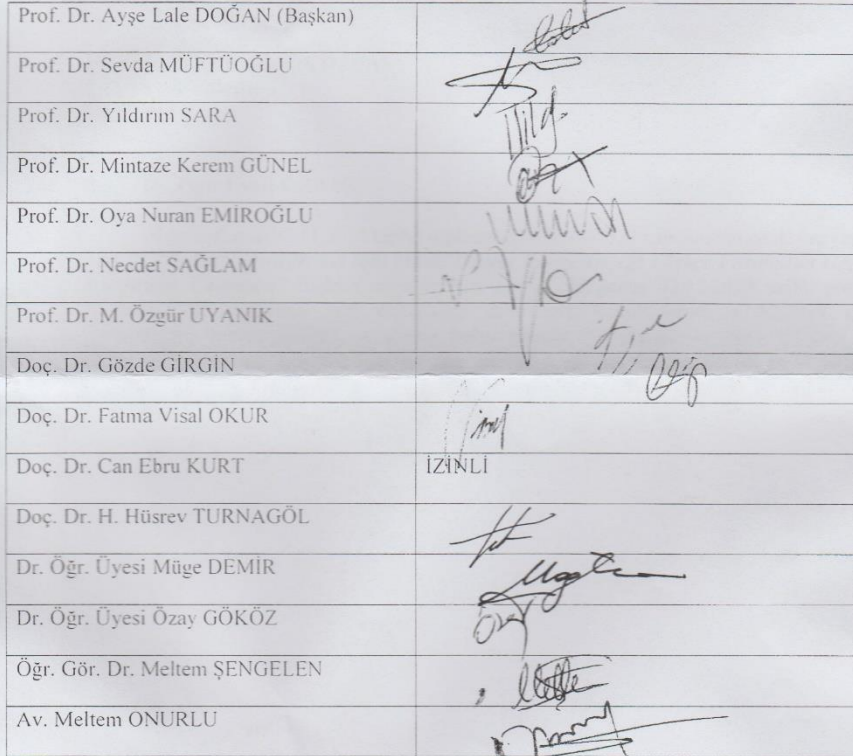 Prof. Dr. Ayşe Lale DOĞAN (Başkan)
Prof. Dr. Sevda MÜFTÜOĞLU
Prof. Dr. Yıldırım SARA
Prof. Dr. Mintaze Kerem GÜNEL
Prof. Dr. Oya Nuran EMİROĞLU
Prof. Dr. Necdet SAĞLAM
Prof. Dr. M. Özgür UYANIK
Doç. Dr. Gözde GİRGİN
Doç. Dr. Fatma Visal OKUR
Doç. Dr. Can Ebru KURT İZİNLİ
Doç. Dr. H. Hüsrev TURNAGÖL
Dr. Öğr. Üyesi Müge DEMİR
Dr. Öğr. Üyesi Özay GÖKÖZ
Öğr. Gör. Dr. Meltem ŞENGELEN
Av. Meltem ONURLU